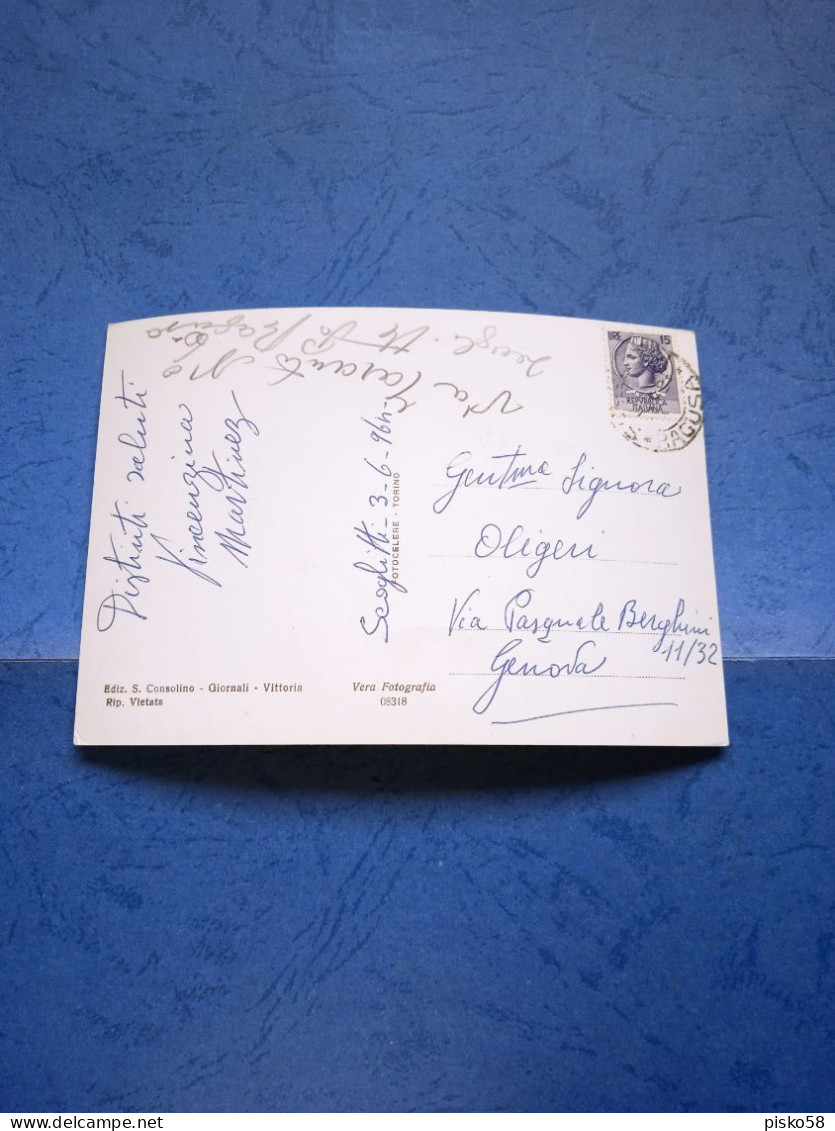 Via Taranto No
Ragusa
15
REPUBBLICA
ITALIANA
RAGUSA
Distinti saluti
Vincenzina
Martinez
Scoglitti - 3-6-964
FOTOCELERE - TORINO
Gent.ma Signora
Oligeri
Via Pasquale Berghini
11/32
Genova
Ediz. S. Consolino - Giornali - Vittoria
Rip. Vietata
Vera Fotografia
08318
pisko58